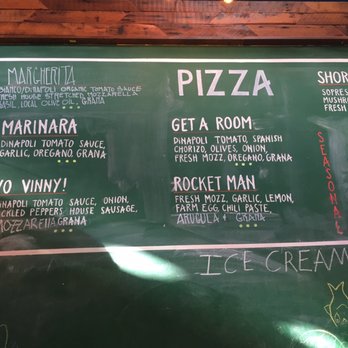 MARGHERITA
BIANCO/DINAPOLI ORGANIC TOMATO SAUCE
FRESH HOUSE STRETCHED MOZZARELLA
BASIL, LOCAL OLIVE OIL, GRANA
MARINARA
DINAPOLI TOMATO SAUCE,
GARLIC, OREGANO, GRANA
YO VINNY!
DINAPOLI TOMATO SAUCE, ONION,
PICKLED PEPPERS HOUSE SAUSAGE,
MOZZARELLA GRANA
PIZZA
GET A ROOM
DINAPOLI TOMATO, SPANISH
CHORIZO, OLIVES, ONION
FRESH MOZZ, OREGANO, GRANA
ROCKET MAN
FRESH MOZZ, GARLIC, LEMON,
FARM EGG, CHILI PASTE,
ARUGULA & GRANA
SHOR
SOPRES
MUSHRO
FRESH
SEASONAL
ICE CREAM